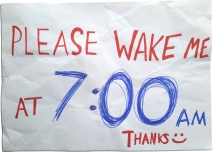 PLEASE WAKE ME
AT 7:00 AM
THANKS